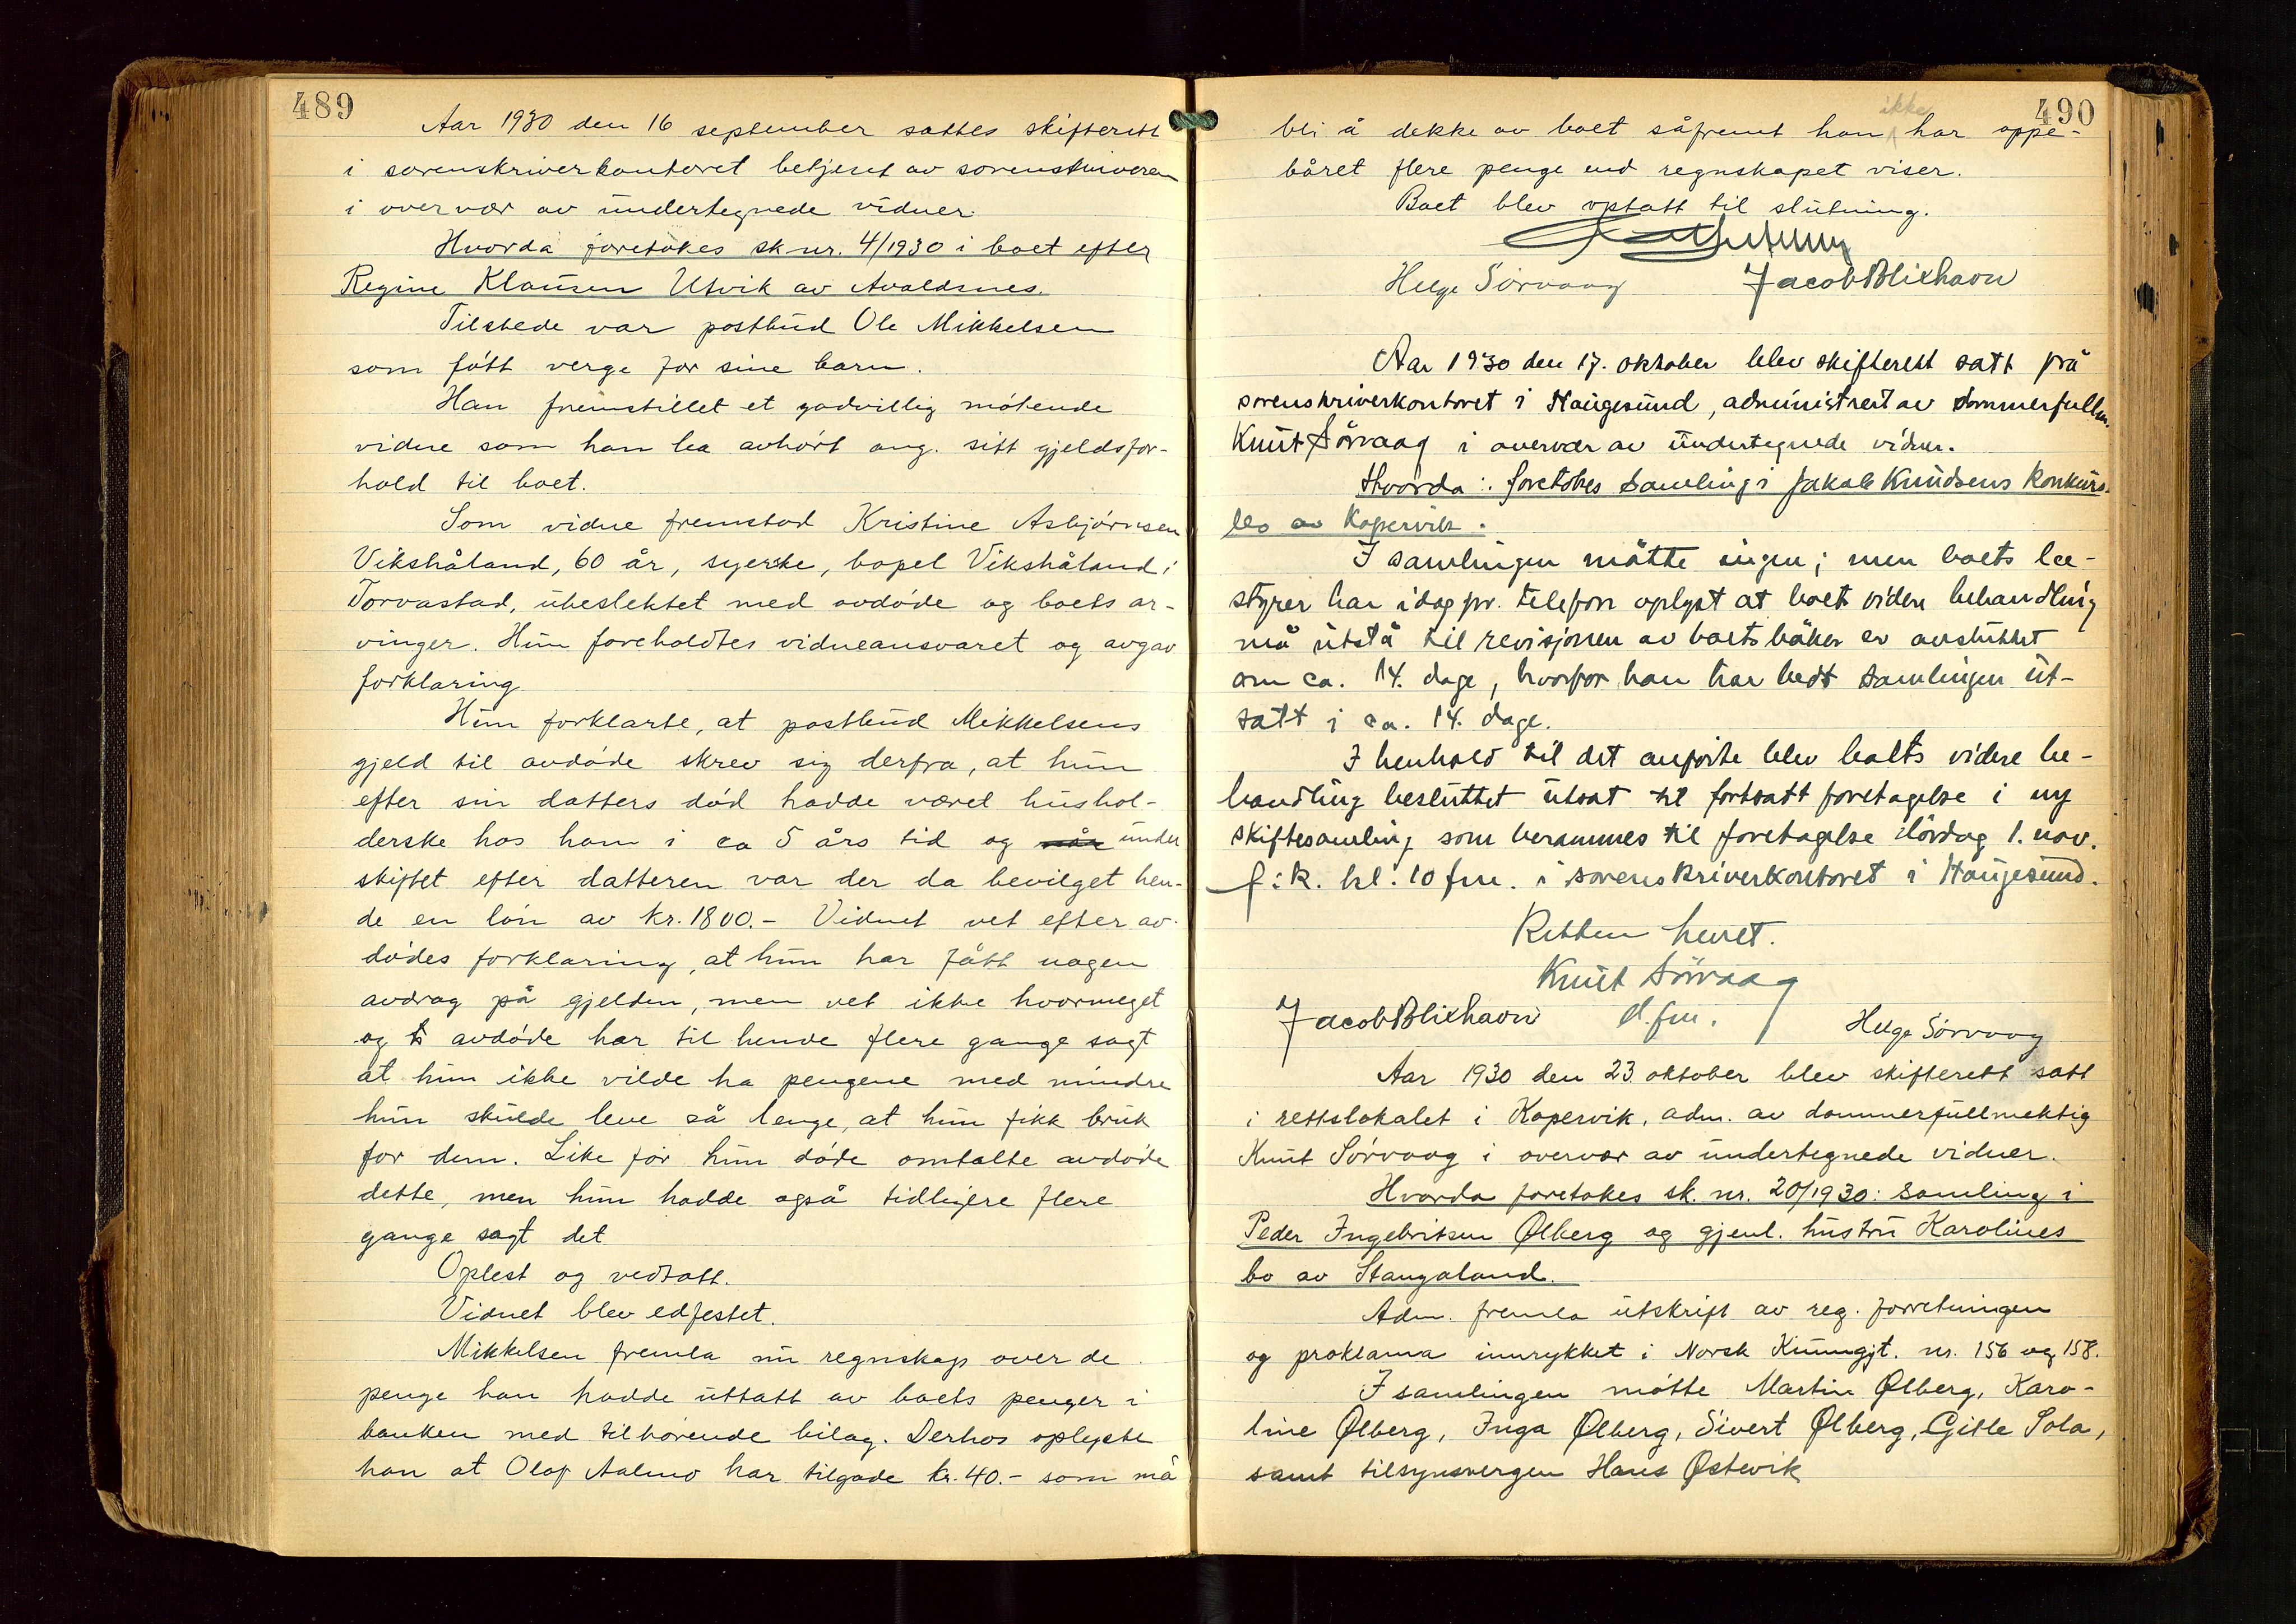 489
Aar 1930 den 16 september sattes skifterett
i sorenskriverkontoret betjent av sorenskriveren
i overvær av undertegnede vidner.
Hvorda foretokes sk nr. 4/1930 i boet efter
Regine Klausen Utvik av Avaldsnes.
Tilstede var postbud Ole Mikkelsen
som født verge for sine barn.
Han fremstillet et godvillig møtende
vidne som han ba avhørt ang. sitt gjeldsfor-
hold til boet.
Som vidne fremstod Kristine Asbjørnsen
Vikshåland, 60 år, syerske, bopel Vikshåland i
Torvastad, ubeslektet med avdøde og boets ar-
vinger. Hun foreholdtes vidneansvaret og avgav
forklaring
Hun forklarte, at postbud Mikkelsens
gjeld til avdøde skrev sig derfra, at hun
efter sin datters død hadde været hushol-
derske hos ham i ca 5 års tid og under
skiftet efter datteren var der da bevilget hen-
de en løn av kr. 1800.- Vidnet vet efter av-
dødes forklaring, at hun har fått nogen
avdrag på gjelden, men vet ikke hvormeget
og avdøde har til hende flere gange sagt
at hun ikke vilde ha pengene med mindre
hun skulde leve så lenge, at hun fikk bruk
for dem. Like før hun døde omtalte avdøde
dette, men hun hadde også tidligere flere
gange sagt det
Oplest og vedtatt.
Vidnet blev edfestet.
Mikkelsen fremla nu regnskap over de
penge han hadde uttatt av boets penger i
banken med tilhørende bilag. Derhos oplyste
han at Olaf Aalmo har tilgode kr. 40.- som må
490
ikke
bli å dekke av boet såfremt han har oppe-
båret flere penge end regnskapet viser.
Boet blev optatt til slutning.
Helge Sørvaag Jacob Blixhavn
Aar 1930 den 17. oktober blev skifterett satt på
sorenskriverkontoret i Haugesund, administrert av dommerfullm.
Knut Sørvaag i overvær av undertegnede vidner.
Hvorda: foretokes Samling i Jakob Knudsens konkurs-
bo av Kopervik.
I samlingen møtte ingen; men boets be-
styrer har idag pr. telefon oplyst at boets videre behandling
må utstå til revisjonen av boets bøker er avsluttet
om ca. 14. dage, hvorfor han har bedt samlingen ut-
satt i ca. 14. dage.
I henhold til det anførte blev boets videre be-
handling besluttet utsat til fortsatt foretagelse i ny
skiftesamling som berammes til foretagelse lørdag 1. nov.
f: k. kl. 10 fm. i sorenskriverkontoret i Haugesund.
Retten hevet.
Knut Sørvaag
Jacob Blixhavn d. fm. Helge Sørvaag
Aar 1930 den 23. oktober blev skifterett satt
i rettslokalet i Kopervik, adm. av dommerfullmektig
Knut Sørvaag i overvær av undertegnede vidner.
Hvorda foretokes sk. nr. 20/1930: Samling i
Peder Ingebritsen Ølberg og gjenl. hustru Karolines
bo av Stangaland.
Adm. fremla utskrift av reg. forretningen
og proklama innrykket i Norsk Kunngjt. nr. 156 og 158.
I samlingen møtte Martin Ølberg, Karo-
line Ølberg, Inga Ølberg, Sivert Ølberg, Gitle Sola,
samt tilsynsvergen Hans Østevik